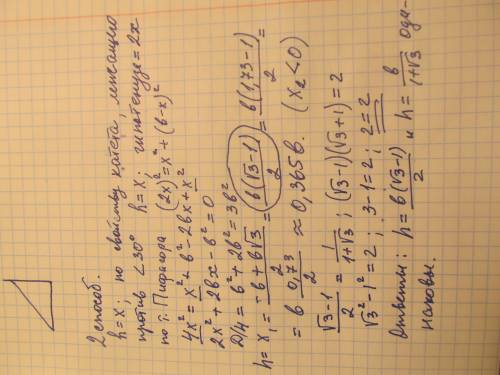 2 способ.
h=x; по свойству катета, лежащего
против ∠30° h=x; гипотенуза=2x
по т. Пифагора (2x)²=x²+(в-x)²
4x²=x²+в²-2вx+x²
2x²+2вx-в²=0
D/4=в²+2в²=3в²
h=x₁=(-в+в√3)/2=в(√3-1)/2=в(1,73-1)/2=
=в 0,73/2≈0,365в. (x₂<0)
(√3-1)/2=1/(1+√3); (√3-1)(√3+1)=2
√3²-1²=2; 3-1=2; 2=2
Ответы: h=в(√3-1)/2 и h=в/(1+√3) оди-
наковы.